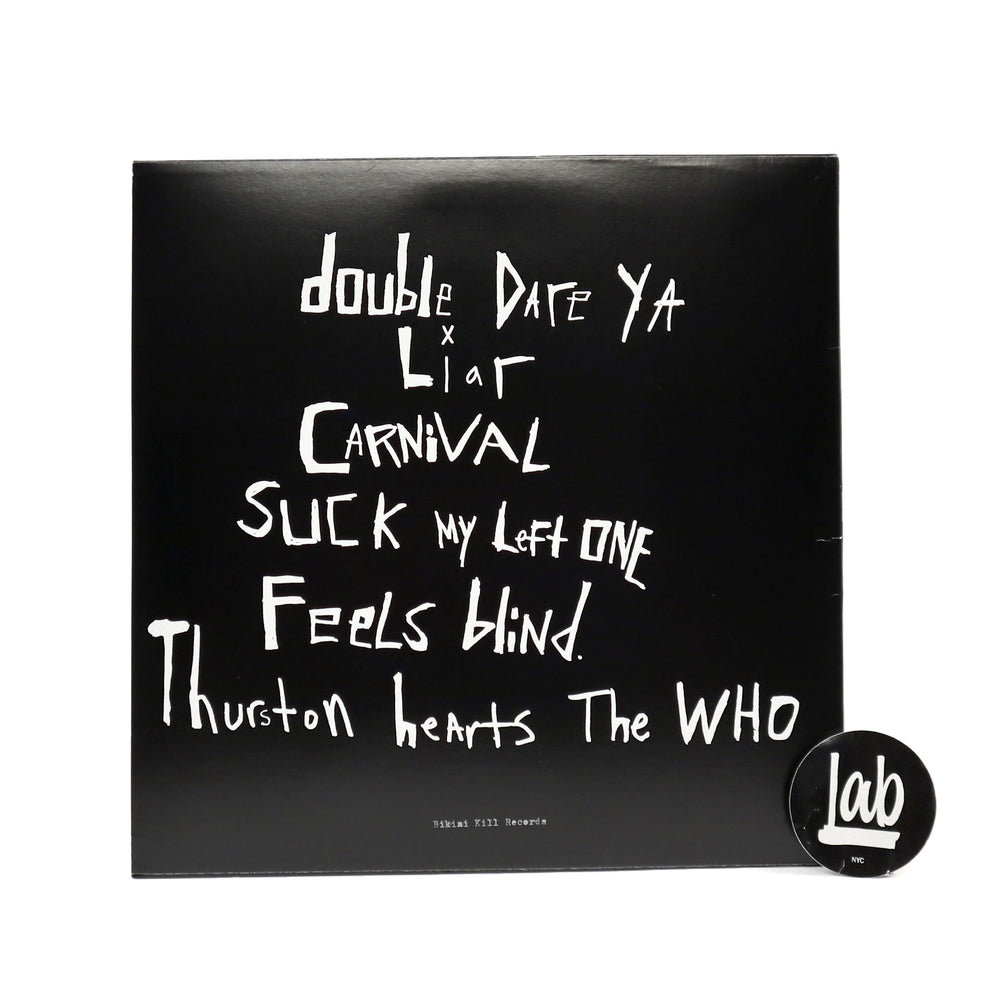 double Dare YA
x
Liar
CARNiVAL
SUCK MY Left ONE
FeeLS blind.
Thurston heArts The WHO
Bikini Kill Records
Lab
NYC